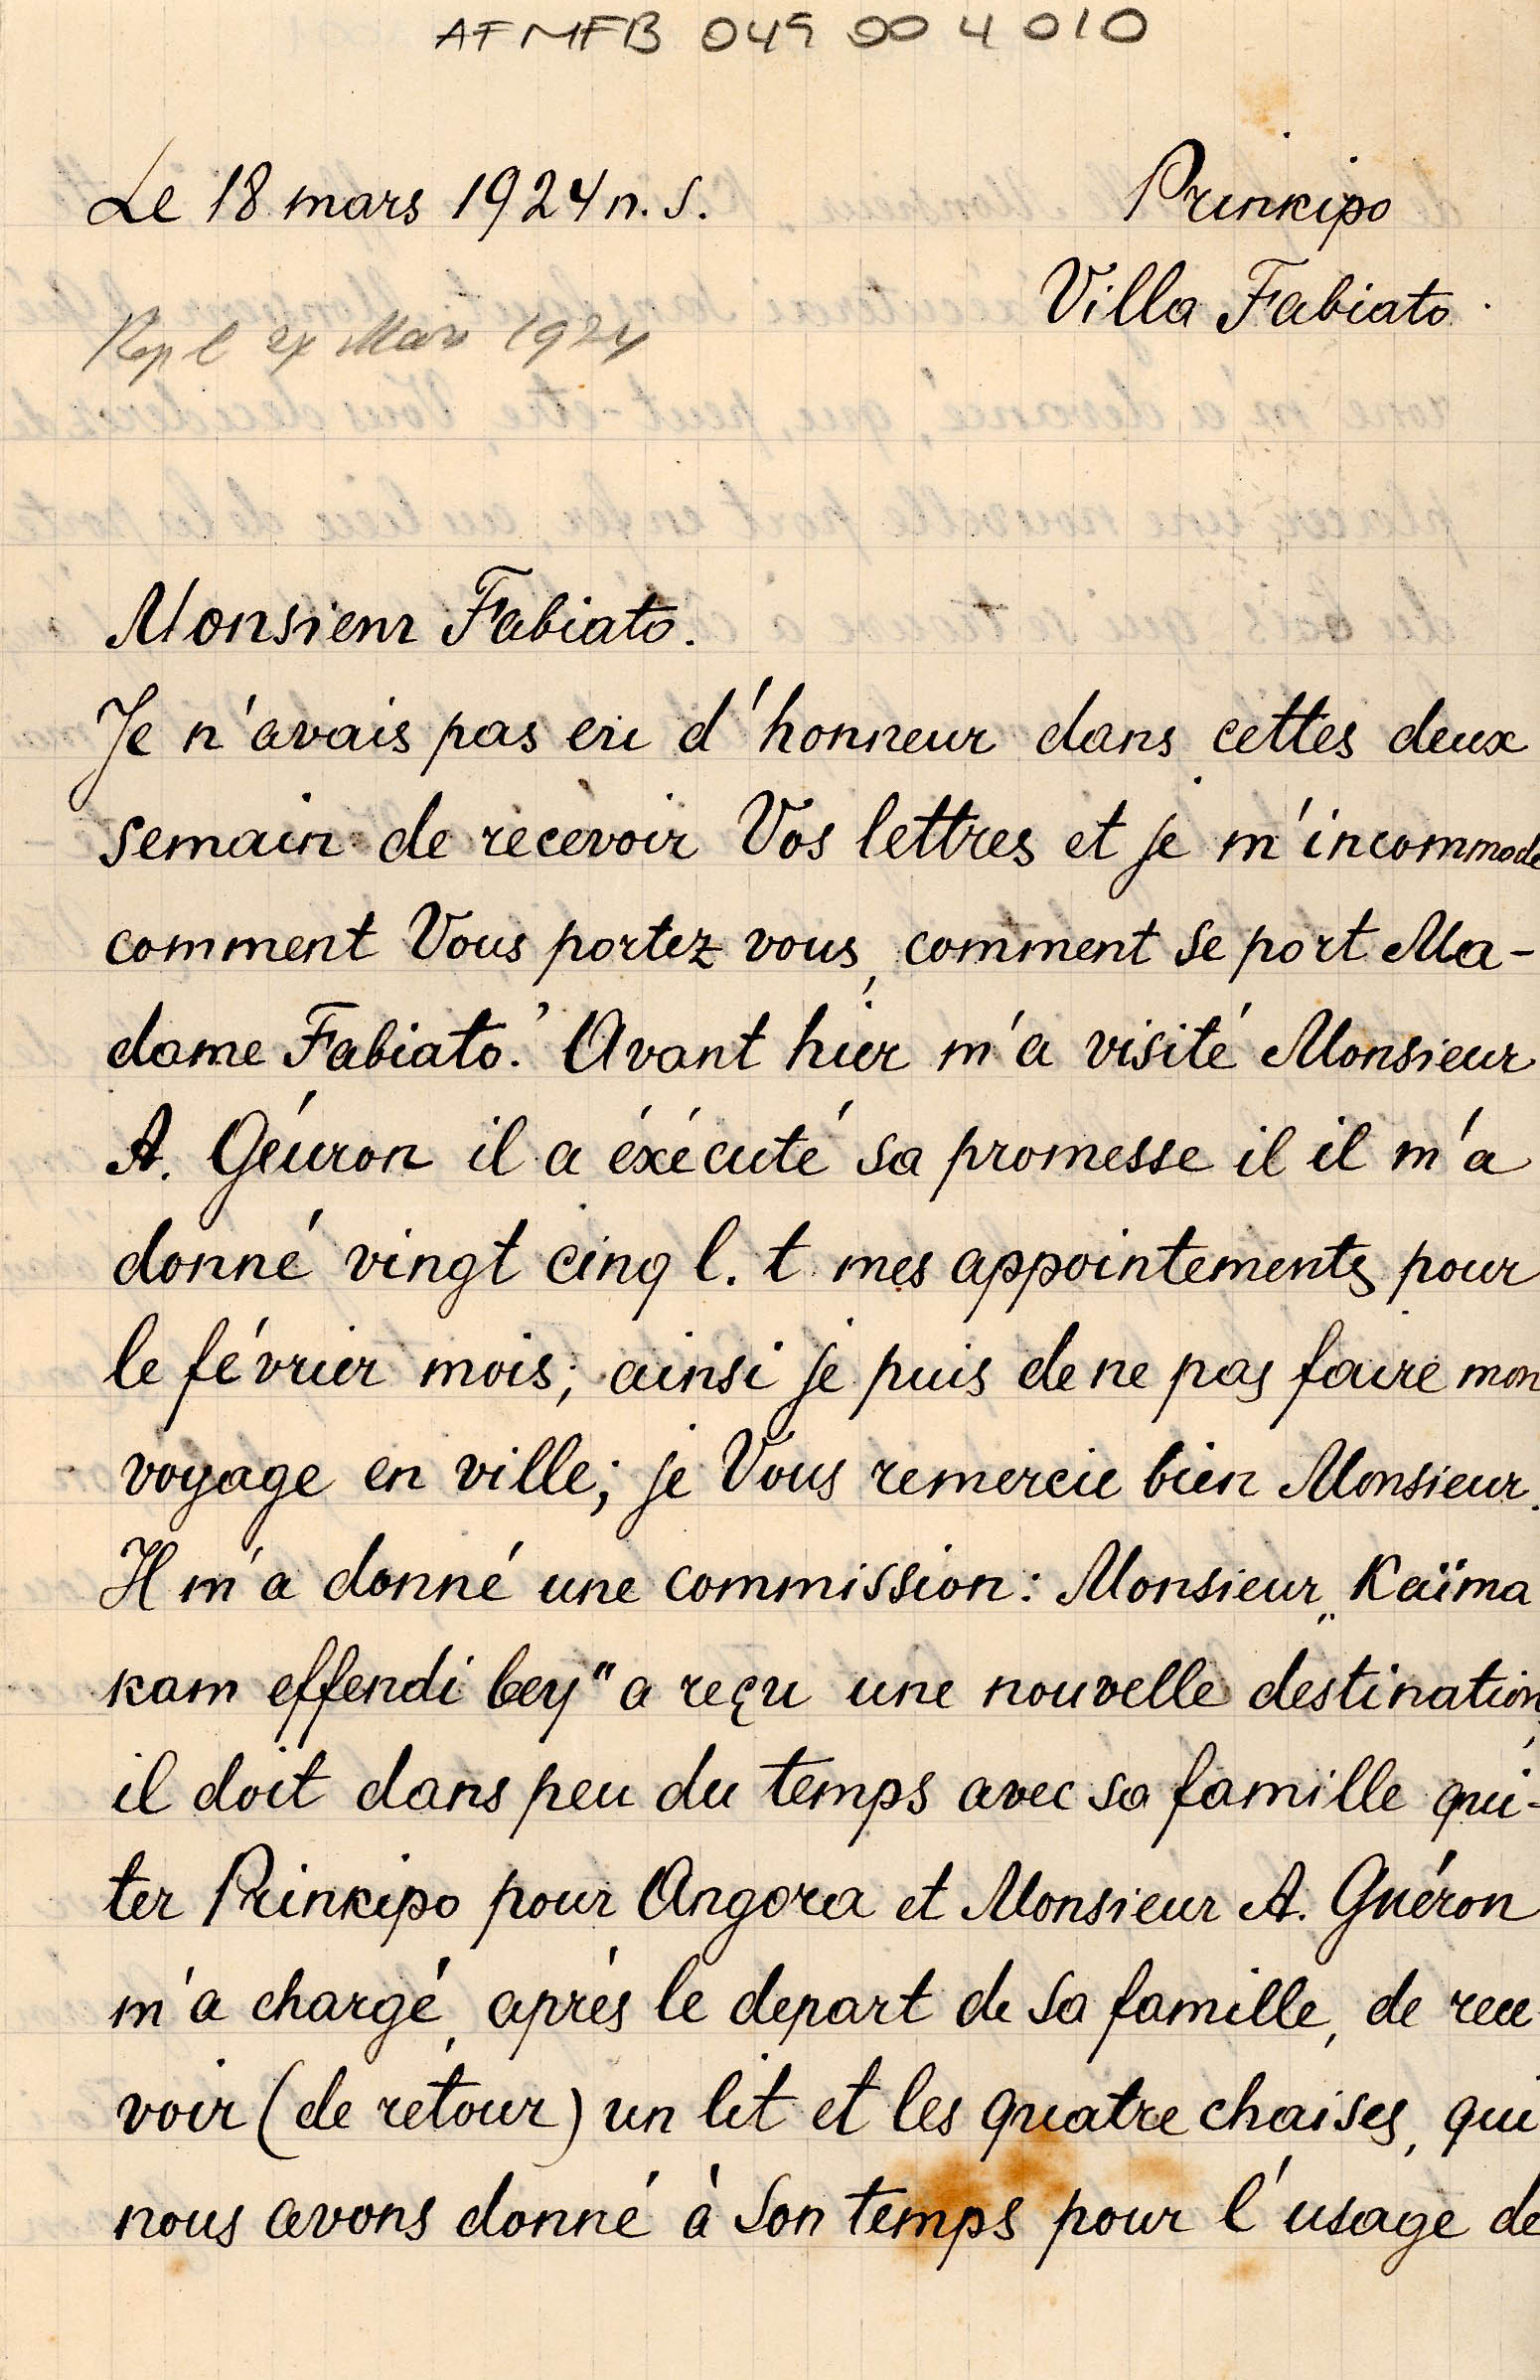 AFMFB 049 00 4 010
Le 18 mars 1924 n. s.
Prinkipo
Villa Fabiato.
Mars 1924
Monsieur Fabiato.
Je n'avais pas eu d'honneur dans cettes deux
semain de recevoir Vos lettres et je m'incommode
comment Vous portez vous, comment se port Ma-
dame Fabiato? Avant hier m'a visité Monsieur
A. Géuron il a éxécuté sa promesse il il m'a
donné vingt cinq l. t mes appointements pour
le février mois; ainsi je puis de ne pas faire mon
voyage en ville; je Vous remercie bien Monsieur.
Il m'a donné une commission: Monsieur „Kaïma
kam effendi bey" a reçu une nouvelle destination,
il doit dans peu du temps avec sa famille qui-
ter Prinkipo pour Angora et Monsieur A. Guéron
m'a chargé, après le depart de sa famille, de rece
voir (de retour) un lit et les quatre chaises, qui
nous avons donné à son temps pour l'usage de